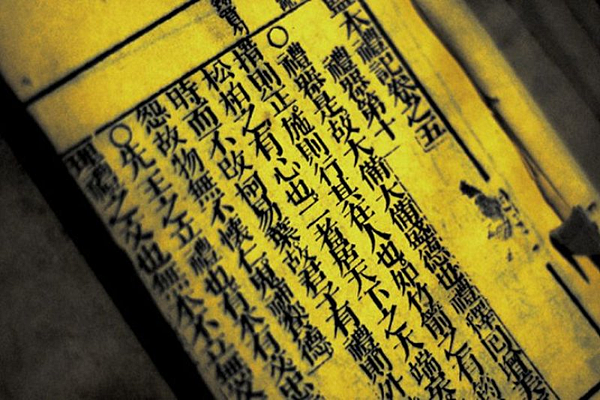 監本禮記卷之五
禮器第十
〇禮器是故大備大備盛德也禮釋回增美
措則正施則行其在人也如竹箭之有
松柏之有心也二者居天下之大端矣
時而不改柯易葉故君子有禮則外
怨故物無不懷仁鬼神饗德
〇先王之立禮也有本有文忠
理禮之文也無本不立無文